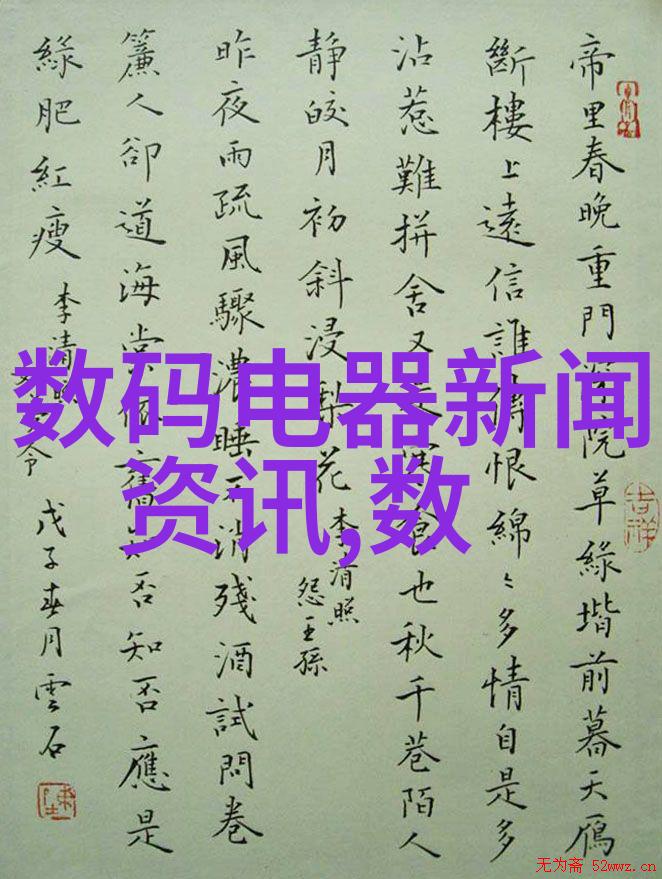 帝里春晚重門深院草緑堦前暮天鴈
斷樓上遠信誰傳恨綿〻多情自是多
沾惹難拼舍又食也秋千巷陌人
靜皎月初斜浸梨花
李清照
怨王孫
昨夜雨疏風驟濃睡不消殘酒試問卷
簾人卻道海棠依舊知否知否應是
緑肥紅瘦
李清照
令
戊子春月雲石
数码电器新闻
资讯,数
吉祥
无为斋 52wwz.cn